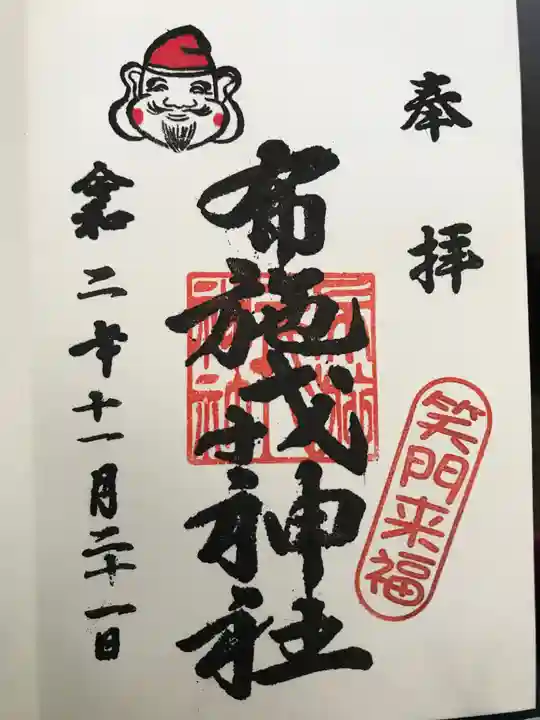 奉拝
布施戎神社
笑門来福
令和二年十一月二十一日